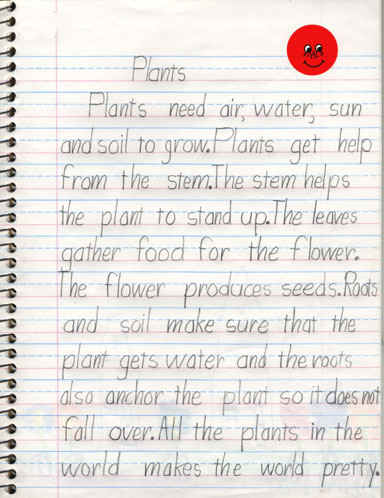 Plants
Plants need air, water, sun
and soil to grow. Plants get help
from the stem. The stem helps
the plant to stand up. The leaves
gather food for the flower.
The flower produces seeds. Roots
and soil make sure that the
plant gets water and the roots
also anchor the plant so it does not
fall over. All the plants in the
world makes the world pretty.